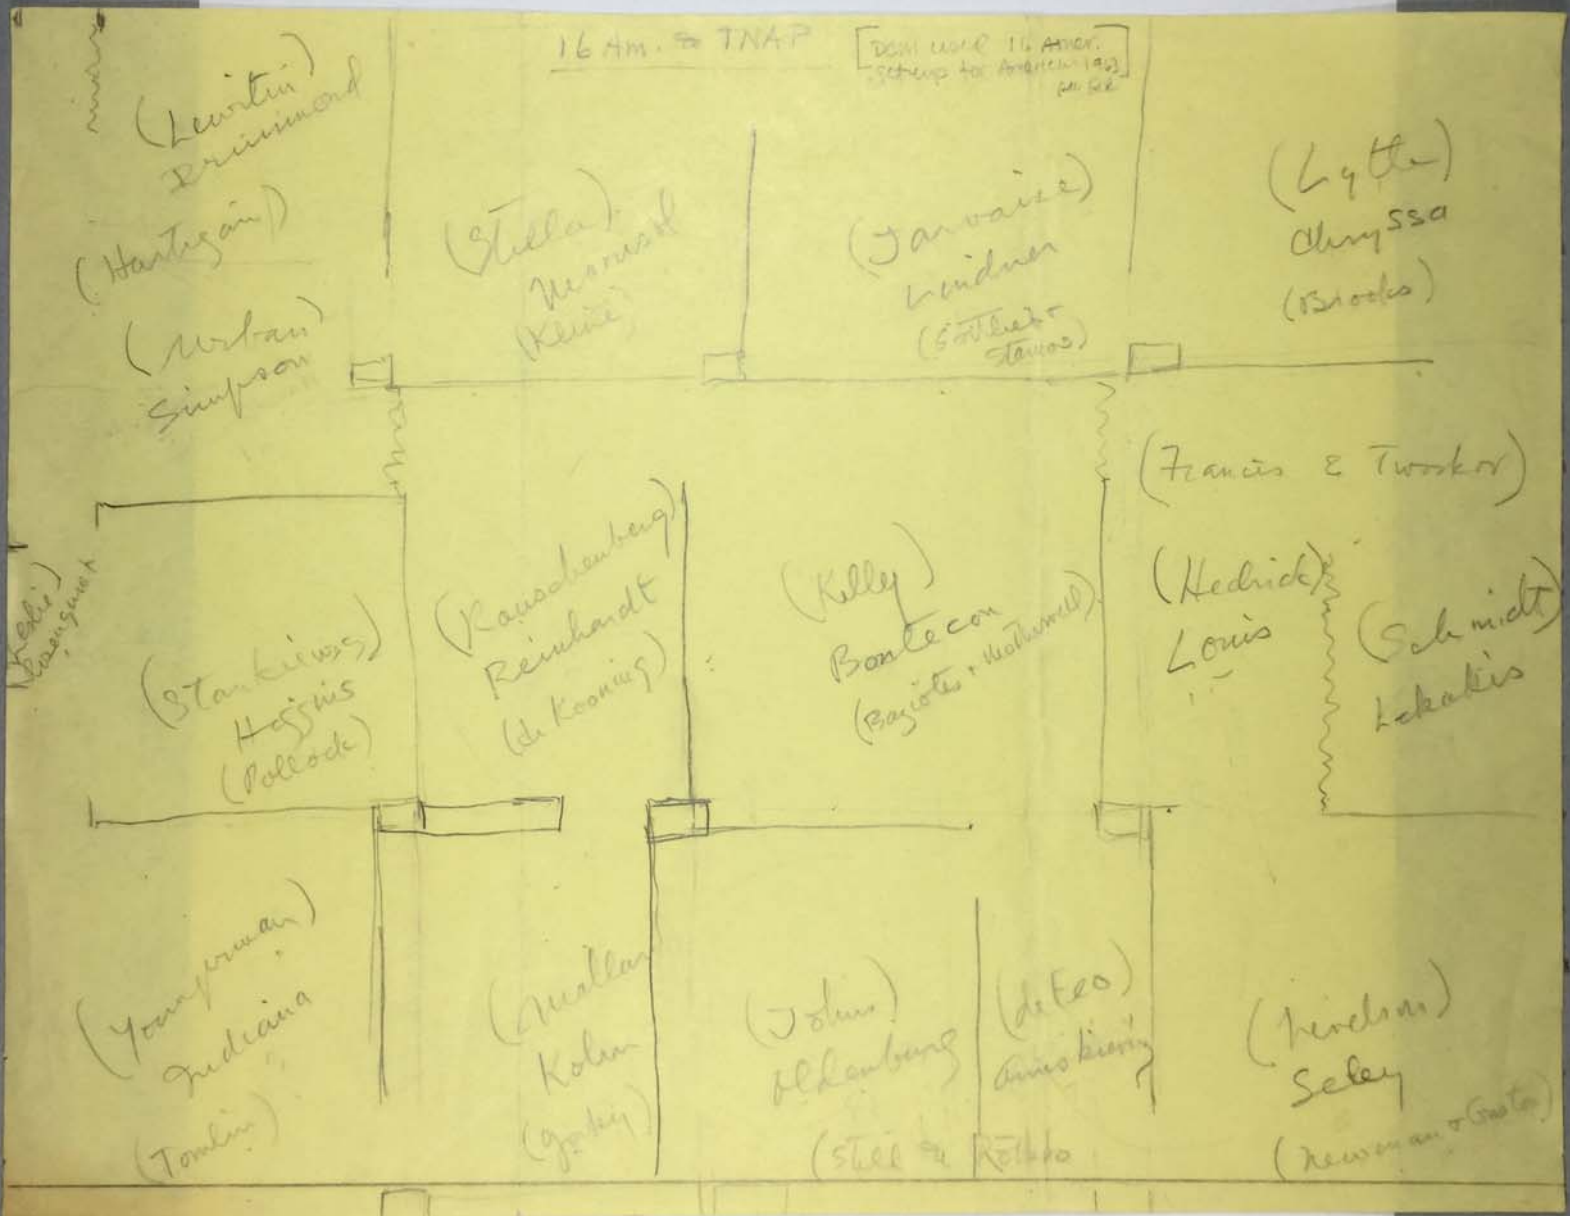 16 Am. & TNAP
[DCM used 16 Amer.
set-up for Americans 1963
(Lewitin)
Drummond
(Hartigan)
(Urban)
Simpson
(Stella)
Marisol
(Kline)
(Jarvaise)
Lindner
(Gottlieb +
Stamos)
(Lytle)
Chryssa
(Brooks)
(Leslie)
Rosenquist
(Stankiewicz)
Higgins
(Pollock)
(Rauschenberg)
Reinhardt
(de Kooning)
(Kelly)
Bontecou
(Baziotes + Motherwell)
(Francis & Tworkov)
(Hedrick)
Louis
(Schmidt)
Lekakis
(Youngerman)
Indiana
(Tomlin)
(Mallary)
Kohn
(Gorky)
(Johns)
Oldenburg
(Still & Rothko
(deFeo)
Anuskiewicz
(Nevelson)
Seley
(Newman + Guston)